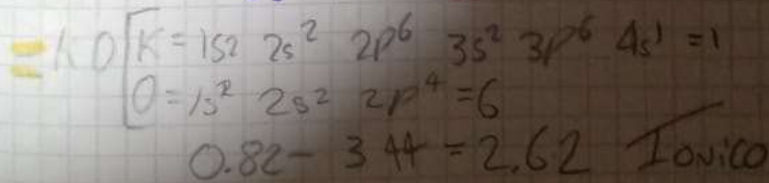 = K O [K = 1s2 2s² 2p⁶ 3s² 3p⁶ 4s¹ = 1
O = 1s² 2s² 2p⁴ = 6
0.82 - 3 44 = 2.62 Ionico